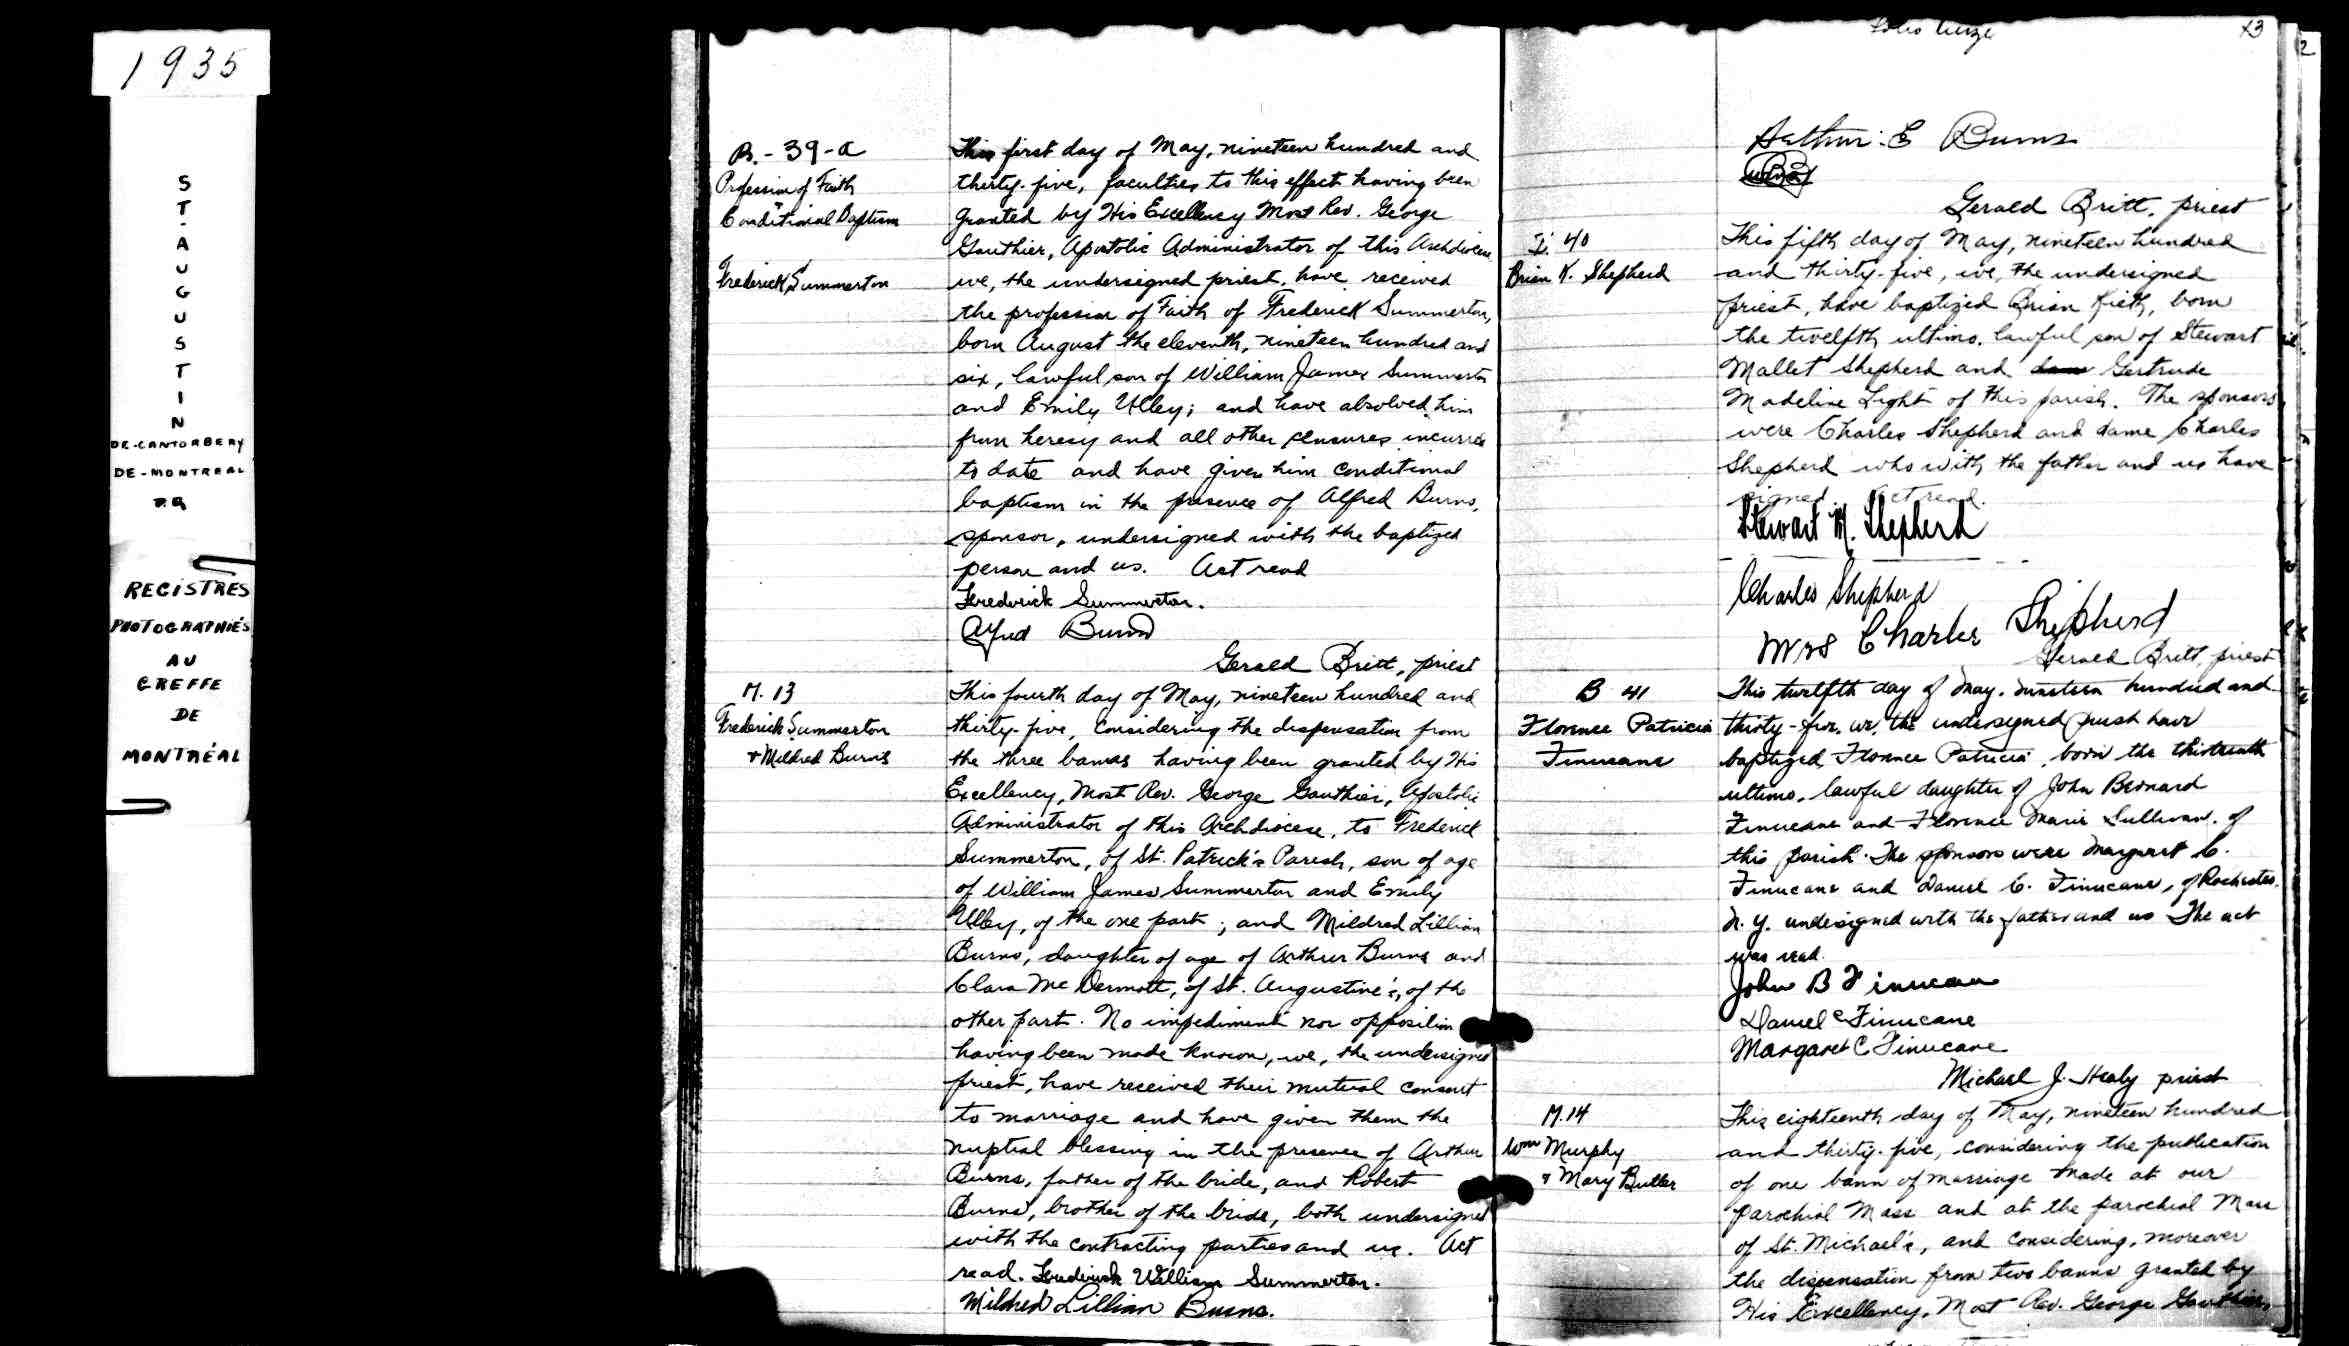 1935
ST. AUGUSTIN
DE-CANTORBERY
DE-MONTREAL
P.Q
REGISTRES
PHOTOGRAPHIÉS
AU
GREFFE
DE
MONTRÉAL
B.-39-a
Profession of Faith
Conditional Baptism
Frederick Summerton
This first day of May, nineteen hundred and
thirty-five, faculties to this effect having been
granted by His Excellency Most Rev. George
Gauthier, Apostolic Administrator of this Archdiocese
we, the undersigned priest, have received
the profession of Faith of Frederick Summerton,
born August the eleventh, nineteen hundred and
six, lawful son of William James Summerton
and Emily Utley; and have absolved him
from heresy and all other censures incurred
to date and have given him conditional
baptism in the presence of Alfred Burns,
sponsor, undersigned with the baptized
person and us. Act read
Frederick Summerton.
Alfred Burns
Gerald Britt, priest
M. 13
Frederick Summerton
+ Mildred Burns
This fourth day of May, nineteen hundred and
thirty-five, considering the dispensation from
the three banns having been granted by His
Excellency, Most Rev. George Gauthier, Apostolic
Administrator of this Archdiocese, to Frederick
Summerton, of St. Patrick's Parish, son of age
of William James Summerton and Emily
Utley, of the one part; and Mildred Lillian
Burns, daughter of age of Arthur Burns and
Clara McDermott, of St. Augustine's, of the
other part. No impediment nor opposition
having been made known, we, the undersigned
priest, have received their mutual consent
to marriage and have given them the
nuptial blessing in the presence of Arthur
Burns, father of the bride, and Robert
Burns, brother of the bride, both undersigned
with the contracting parties and us. Act
read. Frederick William Summerton.
Mildred Lillian Burns.
x3
2
Arthur. E Burns
Gerald Britt, priest
40
Brian K. Shepherd
This fifth day of May, nineteen hundred
and thirty-five, we, the undersigned
priest, have baptized Brian Kieth, born
the twelfth ultimo, lawful son of Stewart
Mallet Shepherd and Gertrude
Madeline Light of this parish. The sponsors
were Charles Shepherd and dame Charles
Shepherd who with the father and us have
signed. Act read.
Stewart M. Shepherd
Charles Shepherd
Mrs Charles Shepherd
Gerald Britt, priest
B 41
Florence Patricia
Finucane
This twelfth day of May, nineteen hundred and
thirty-five, we, the undersigned priest have
baptized Florence Patricia, born the thirteenth
ultimo, lawful daughter of John Bernard
Finucane and Florence Marie Sullivan, of
this parish. The sponsors were Margaret C.
Finucane and Daniel C. Finucane, of Rochester,
N.Y. undersigned with the father and us The act
was read.
John B Finucane
Daniel C Finucane
Margaret C Finucane
Michael J. Healy priest
M.14
Wm Murphy
+ Mary Butler
This eighteenth day of May, nineteen hundred
and thirty-five, considering the publication
of one bann of marriage made at our
parochial Mass and at the parochial Mass
of St. Michael's, and considering, moreover
the dispensation from two banns granted by
His Excellency, Most Rev. George Gauthier,